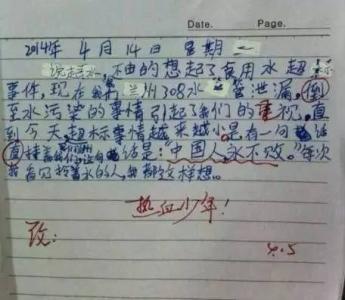 Date. Page.
2014年 4月14日 星期一
说起水,不由的想起了食用水超标
事件,现在 兰州308水 管泄漏,倒
至水污染的事情引起了我们的重视,直
到今天超标事情越来越小是有一句话
直 话是:"中国人,永不败。"每次
我看见拎着水的人,我都这样想。
热血少年!
改:
4.5